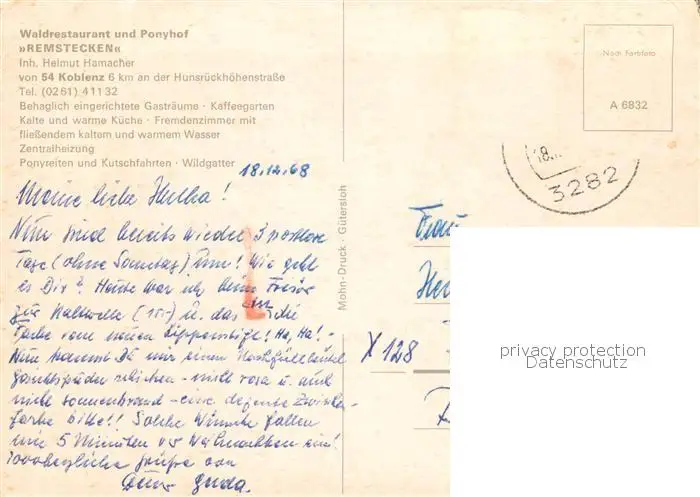 Waldrestaurant und Ponyhof
»REMSTECKEN«
Inh. Helmut Hamacher
von 54 Koblenz 6 km an der Hunsrückhöhenstraße
Tel. (0261) 41132
Behaglich eingerichtete Gasträume · Kaffeegarten
Kalte und warme Küche · Fremdenzimmer mit
fließendem kaltem und warmem Wasser
Zentralheizung
Ponyreiten und Kutschfahrten · Wildgatter
18.12.68
Meine liebe Hella!
Nun sind bereits wieder 3 postlose
Tage (ohne Sonntag) um! Wie geht
es Dir? Heute war ich beim Frisör
zur Kaltwelle u. das ist die
Farbe vom neuen Lippenstift! Ha, Ha! -
Nun kannst Du mir einen Nachfüllbeutel
Gesichtspuder schicken - nicht rosa u. auch
nicht sonnenbrand - eine dezente Zwischen-
farbe bitte!! Solche Wünsche fallen
mir 5 Minuten vor Weihnachten ein!
1000 herzliche Grüße von
Deiner Gerda.
Mohn-Druck · Gütersloh
Nach Farbfoto
A 6832
18.
3282
Frau
X 128
privacy protection
Datenschutz